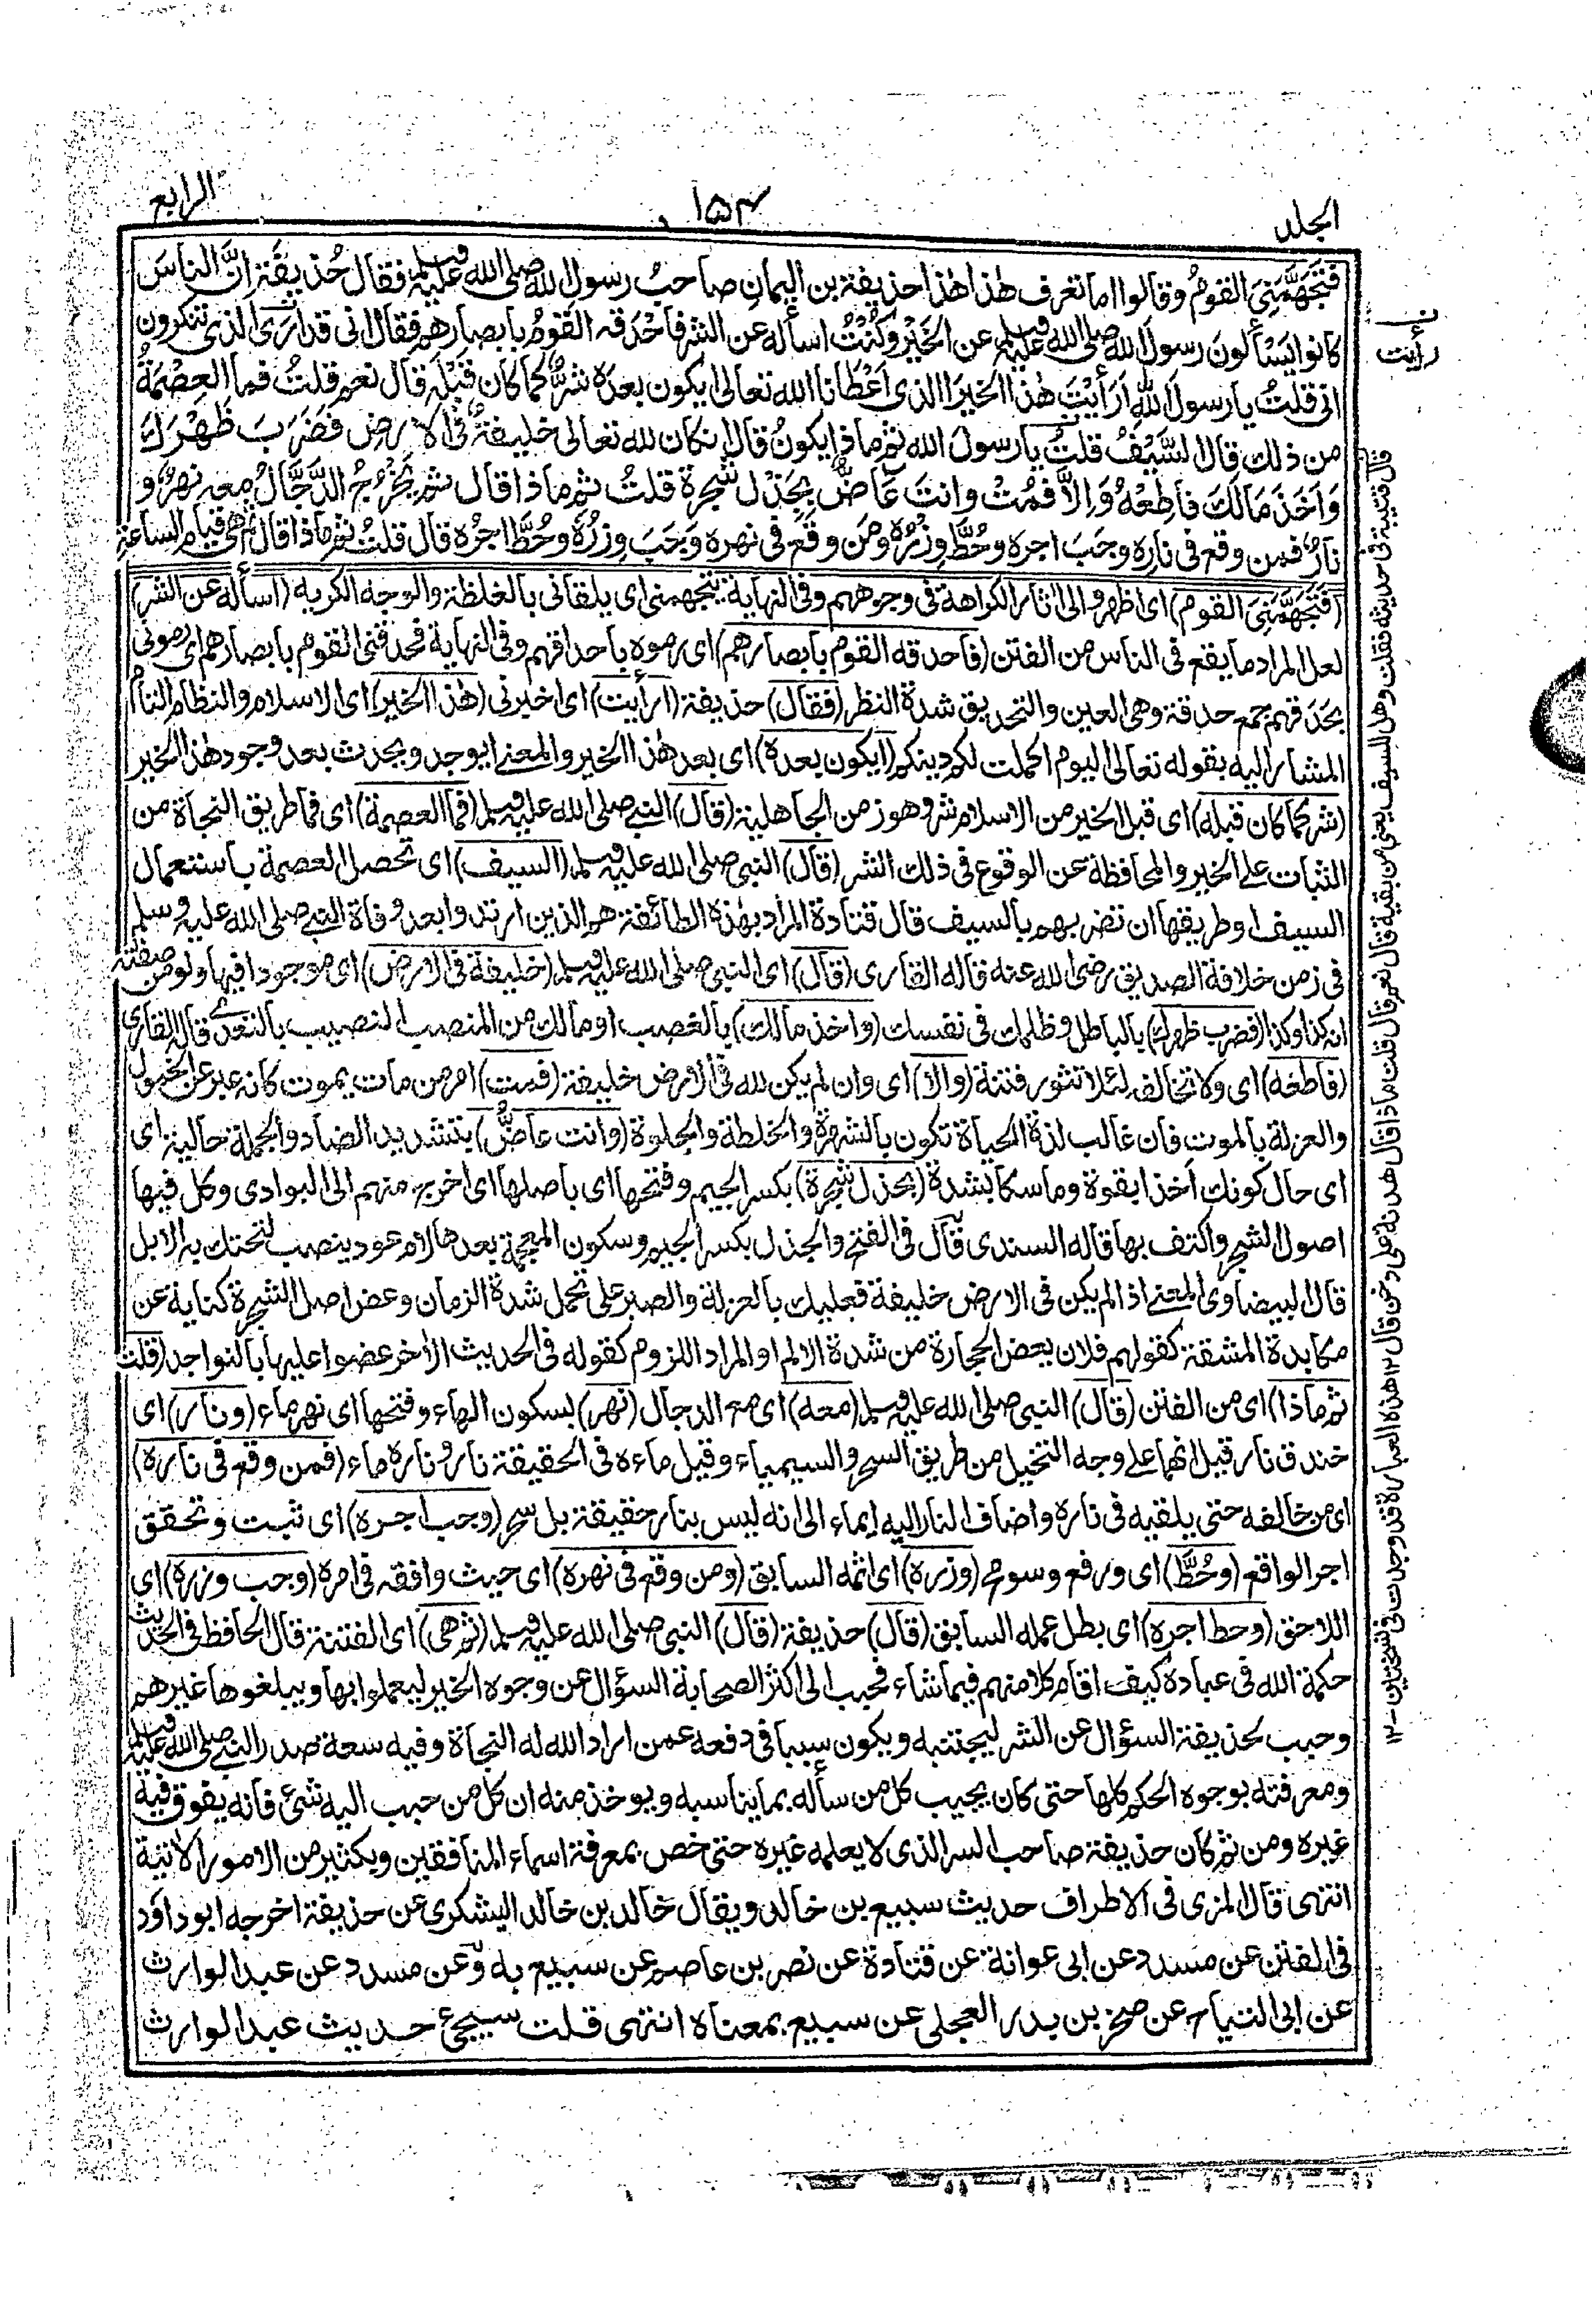 الجلد
١٥٣
الرابع
فَتَجَهَّمَنِيَ القومُ وقالوا اما تعرف هٰذا هٰذا حذيفة بن اليمان صاحبُ رسول الله صلى الله عليه وسلم فقال حُذيفَة اِنَّ الناسَ
كانوا يَسْأَلونَ رسولَ الله صلى الله عليه وسلم عن الخَيْرِ وكُنْتُ اسأله عن الشر فاَحْدَقه القومُ بابصارهم فقال انى قد ارى الذى تنكرون
انى قلتُ يا رسولَ الله اَرَأَيْتَ هٰذا الخَيرَ الذى اَعْطانا الله تعالى ايكون بعدَه شرٌّ كما كان قَبْلَه قال نعم قلتُ فما العِصْمَةُ
من ذلك قال السَّيْفُ قلتُ يا رسولَ الله ثم ماذا يكونُ قال ان كان لله تعالى خليفةٌ فى الارض فضَرَبَ ظَهْرَكَ
وَاَخَذَ مَالَكَ فاَطِعْهُ وَاِلَّا فَمُتْ وانتَ عَاضٌّ بِجَذْل شجرة قلتُ ثم ماذا قال ثم يَخْرُجُ الدَّجَّالُ معه نهرٌ و
نارٌ فمن وقع فى ناره وجَبَ اجره وحُطَّ وِزْرُه ومَن وقَعَ فى نهره وَجَبَ وِزْرُه وحُطَّ اجْرُه قال قلتُ ثم ماذا قال ثم هى قيام الساعة
(فَتَجَهَّمَنِىَ القوم) اى اظهروا الى اثار الكراهة فى وجوههم وفى النهاية: يتجهمنى اى يلقانى بالغلظة والوجه الكريه (اسأله عن الشر)
لعل المراد ما يقع فى الناس من الفتن (فاحدقه القوم بابصارهم) اى رموه باحداقهم وفى النهاية فحدقنى القوم بابصارهم اى رمونى
بحَدَقهم جمع حدقة وهى العين والتحديق شدة النظر (فقال) حذيفة (ارأيت) اى اخبرنى (هٰذا الخير) اى الاسلام والنظام التام
المشار اليه بقوله تعالى اليوم اكملت لكم دينكم (ايكون بعده) اى بعد هٰذا الخير والمعنى ايوجد ويحدث بعد وجود هٰذا الخير
(شر كما كان قبله) اى قبل الخير من الاسلام شر وهو زمن الجاهلية (قال) النبى صلى الله عليه وسلم (فما العصمة) اى فما طريق النجاة من
الثبات على الخير والمحافظة عن الوقوع فى ذلك الشر (قال) النبى صلى الله عليه وسلم (السيف) اى تحصل العصمة باستعمال
السيف او طريقها ان تضربهم بالسيف قال قتادة المراد بهٰذه الطائفة هم الذين ارتدوا بعد وفاة النبى صلى الله عليه وسلم
فى زمن خلافة الصديق رضى الله عنه قاله القارى (قال) اى النبى صلى الله عليه وسلم (خليفة فى الارض) اى موجودا فيها ولو من صفته
انه كذا وكذا (فضرب ظهرك) بالباطل وظلمك فى نفسك (واخذ مالك) بالغصب او مالك من المنصب النصيب بالتعدى قاله القارى
(فاطعه) اى ولا تخالفه لئلا تثور فتنة (والا) اى وان لم يكن لله فى الارض خليفة (فمت) امر من مات يموت كانه عبر عن الخمول
والعزلة بالموت فان غالب لذة الحياة تكون بالشهرة والخلطة والجلوة (وانت عاضٌّ) بتشديد الضاد والجملة حالية اى
اى حال كونك اٰخذا بقوة وماسكا بشدة (بجذل شجرة) بكسر الجيم وفتحها اى باصلها اى اخرج منهم الى البوادى وكل فيها
اصول الشجر واكتف بها قاله السندى قال فى الفتح والجذل بكسر الجيم وسكون المعجمة بعدها لام عود ينصب لتحتك به الابل
قال البيضاوى المعنى اذا لم يكن فى الارض خليفة فعليك بالعزلة والصبر على تحمل شدة الزمان وعض اصل الشجرة كناية عن
مكابدة المشقة كقولهم فلان يعض الحجارة من شدة الالم او المراد اللزوم كقوله فى الحديث الاٰخر عضوا عليها بالنواجد (قلت
ثم ماذا) اى من الفتن (قال) النبى صلى الله عليه وسلم (معه) اى مع الدجال (نهر) بسكون الهاء وفتحها اى نهر ماء (ونار) اى
خندق نار قيل انهما على وجه التخيل من طريق السحر والسيمياء وقيل ماءه فى الحقيقة نار وناره ماء (فمن وقع فى ناره)
اى من خالفه حتى يلقيه فى ناره واضاف النار اليه ايماء الى انه ليس بنار حقيقة بل سحر (وجب اجره) اى ثبت وتحقق
اجر الواقع (وحُطَّ) اى ورفع وسومح (وزره) اى اثمه السابق (ومن وقع فى نهره) اى حيث وافقه فى امره (وجب وزره) اى
اللاحق (وحط اجره) اى بطل عمله السابق (قال) حذيفة (قال) النبى صلى الله عليه وسلم (ثم هى) اى الفتنة قال الحافظ فى الحديث
حكمة الله فى عباده كيف اقام كلا منهم فيما شاء فحبب الى اكثر الصحابة السؤال عن وجوه الخير ليعملوا بها ويبلغوها غيرهم
وحبب لحذيفة السؤال عن الشر ليجتنبه ويكون سببا فى دفعه عمن اراد الله له النجاة وفيه سعة صدر النبى صلى الله عليه وسلم
ومعرفته بوجوه الحكم كلها حتى كان يجيب كل من سأله بما يناسبه ويوخذ منه ان كل من حبب اليه شئ فانه يفوق فيه
غيره ومن ثم كان حذيفة صاحب السر الذى لا يعلمه غيره حتى خص بمعرفة اسماء المنافقين وبكثير من الامور الاٰتية
انتهى قال المزى فى الاطراف حديث سبيع بن خالد ويقال خالد بن خالد اليشكرى عن حذيفة اخرجه ابو داود
فى الفتن عن مسدد عن ابى عوانة عن قتادة عن نصر بن عاصم عن سبيع به وعن مسدد عن عبد الوارث
عن ابى التياح عن صخر بن بدر العجلى عن سبيع بمعناه انتهى قلت سيجئ حديث عبد الوارث
رأيت
قال قتيبة فى حديثه فقلت وهل للسيف يعنى من بقية قال نعم قال قلت ماذا قال هدنة على دخن قال ١٢ هٰذه العبارة قد وجدت فى نسختين ١٢